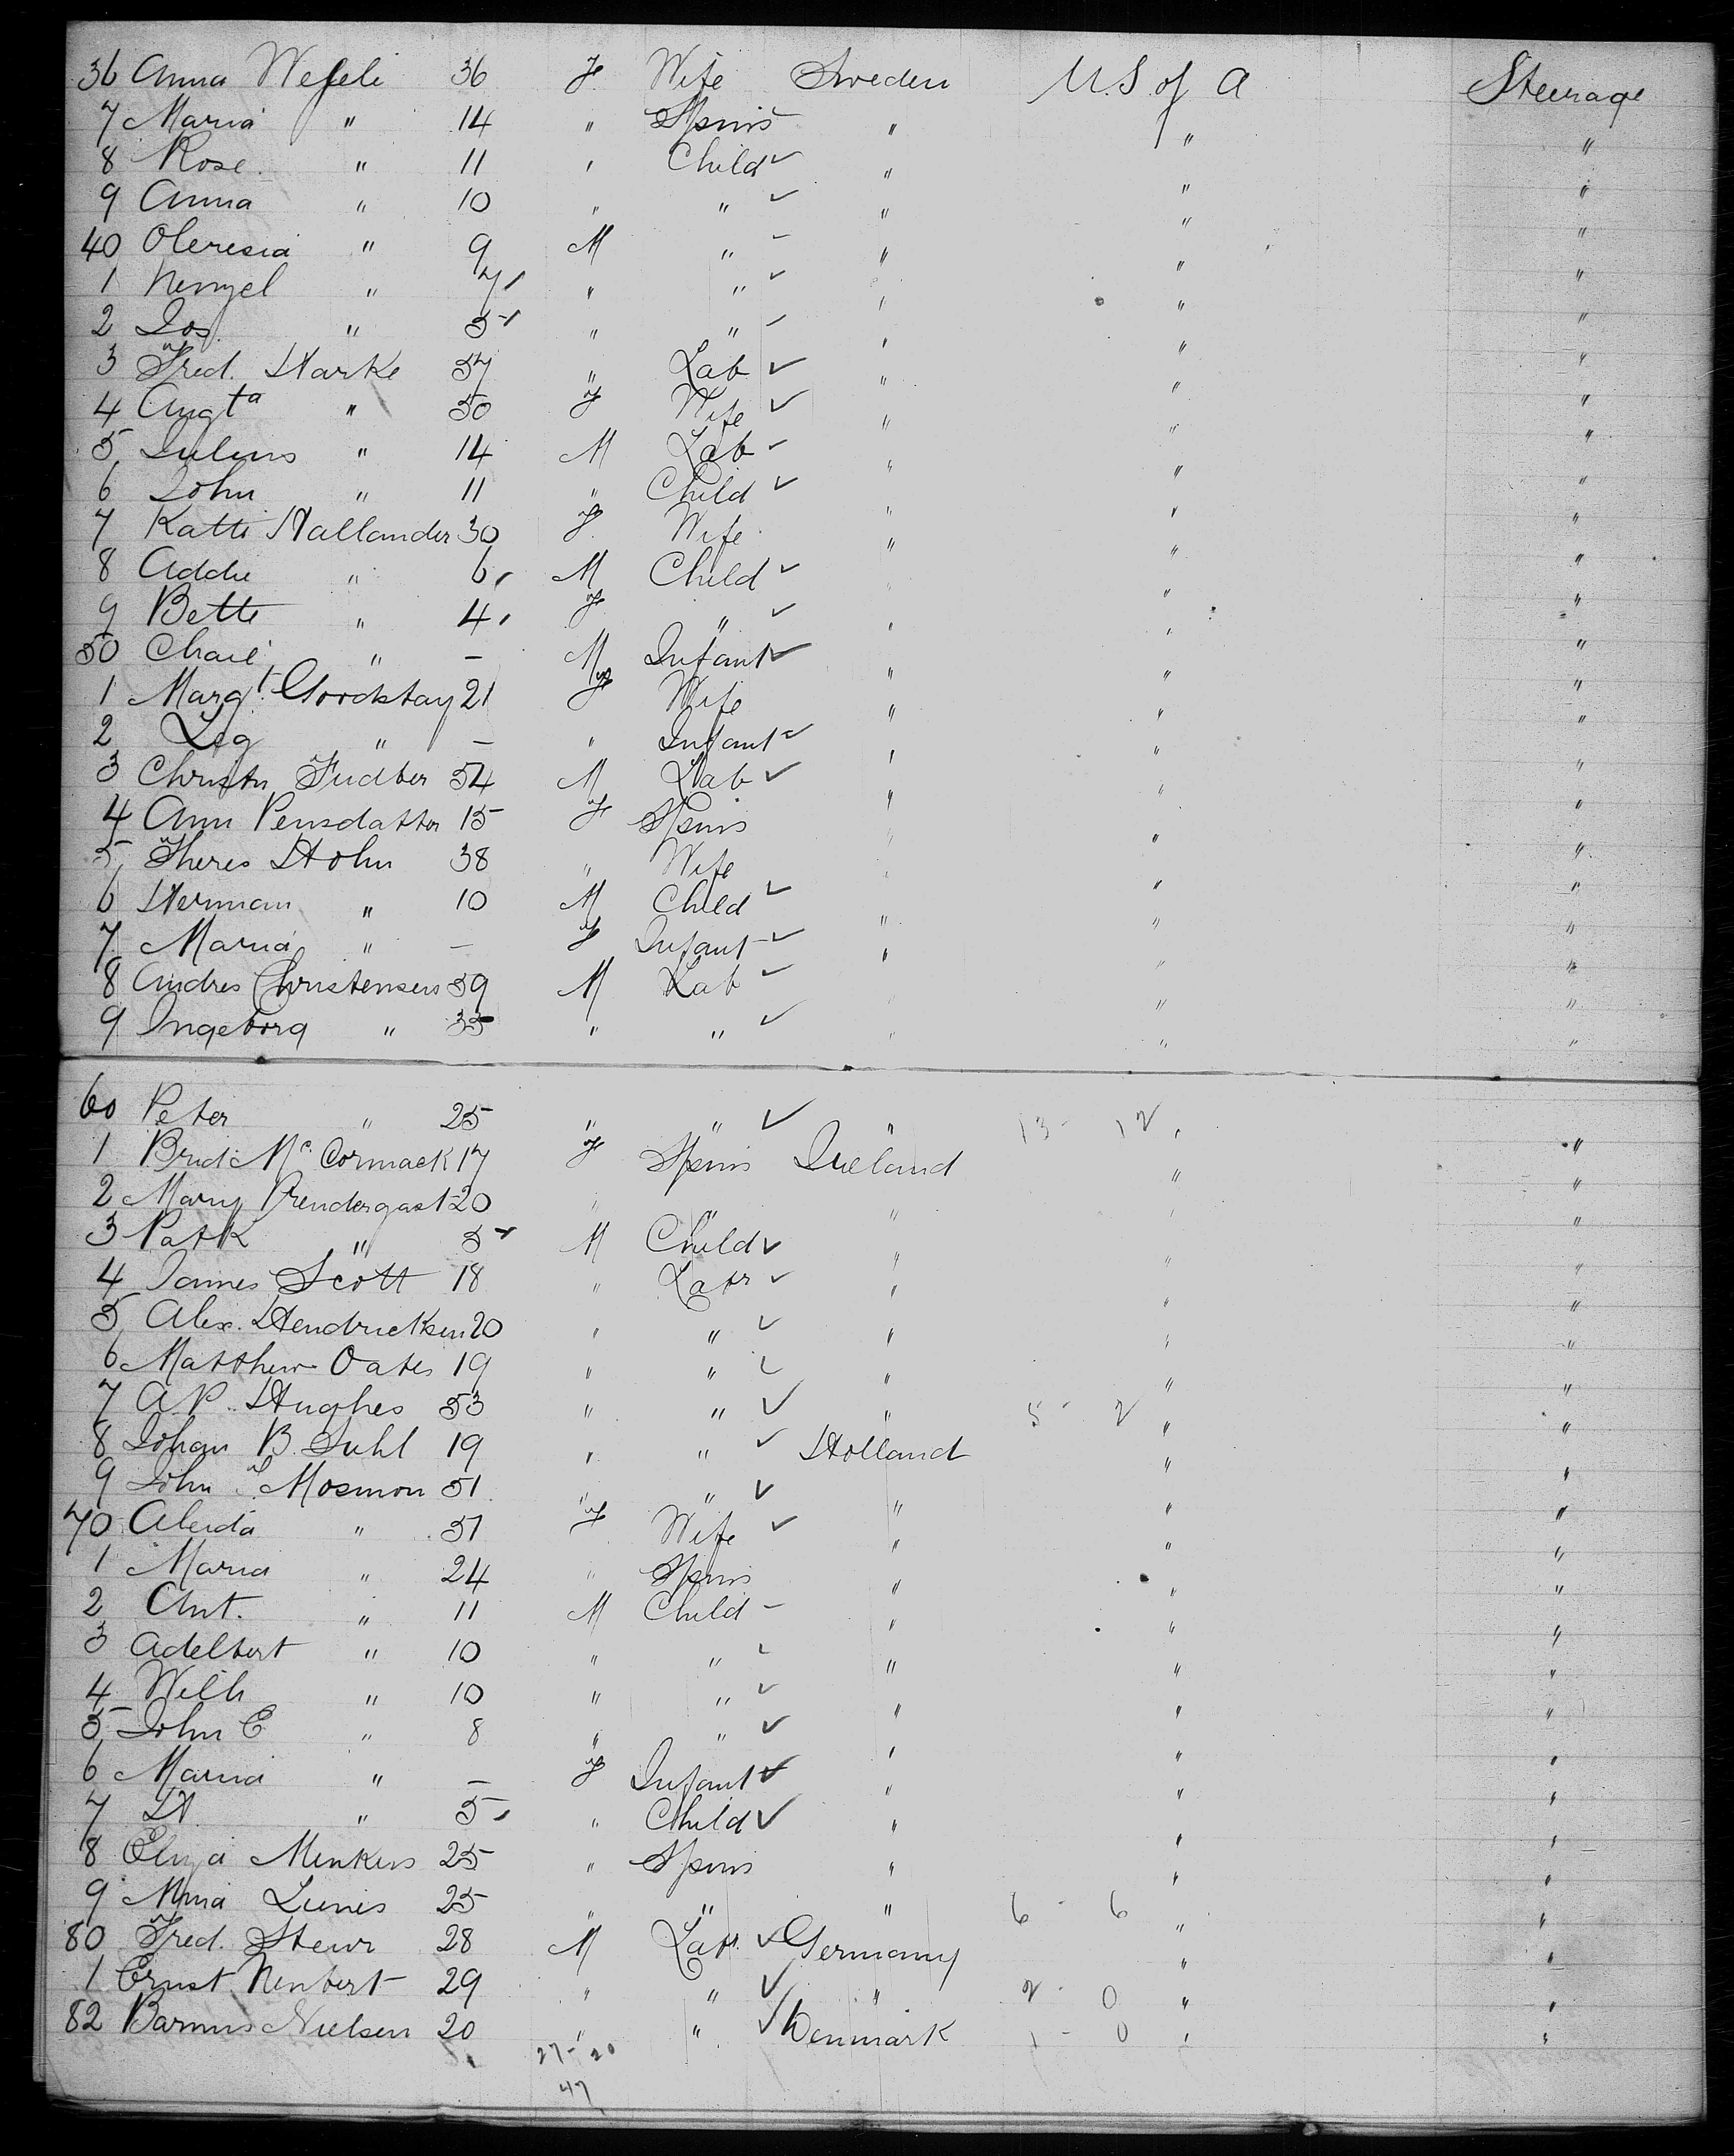 36 Anna Wefeli 36 F. Wife Sweden U.S. of A Steerage
7 Maria " 14 " Spins " " "
8 Rose " 11 " Child ✓ " " "
9 Anna " 10 " " ✓ " " "
40 " 9 M " - " " "
1 " 7 " " ✓ " " "
2 Jos. " 5 " " - " " "
3 Fred. Harke 57 " Lab ✓ " " "
4 Augta " 50 F Wife ✓ " " "
5 Julius " 14 M Lab - " " "
6 John " 11 " Child ✓ " " "
7 Katti Hallander 30 F. Wife " " "
8 Addie " 6 M Child ✓ " " "
9 Bette " 4 F " ✓ " " "
50 " - M Infant ✓ " " "
1 Margt. 21 F Wife " " "
2 " - " Infant ✓ " " "
3 Christn 54 M Lab ✓ " " "
4 Ann Pensdatter 15 F Spins " " "
5 Theres Hohn 38 " Wife " " "
6 Herman " 10 M Child ✓ " " "
7 Maria " - F Infant ✓ " " "
8 Andres Christensen 59 M Lab ✓ " " "
9 Ingeborg " 35 " " ✓ " " "
60 Peter " 25 " " ✓ " 13 - 12 " "
1 Brid. Mc Cormack 17 F Spins Ireland " "
2 Mary Prendergast 20 " " " " "
3 Patk " 5 M Child ✓ " " "
4 James Scott 18 " Labr ✓ " " "
5 Alex. Hendricksen 20 " " ✓ " " "
6 Matthew Oates 19 " " ✓ " " "
7 A.P. Hughes 53 " " ✓ " 5 - 2 " "
8 Johan B. Juhl 19 " " ✓ Holland " "
9 John F. Mosmon 51 " " ✓ " " "
70 Aleida " 51 F Wife ✓ " " "
1 Maria " 24 " Spins " " "
2 Ant. " 11 M Child - " " "
3 Adelbert " 10 " " ✓ " " "
4 Wilh " 10 " " ✓ " " "
5 John E " 8 " " ✓ " " "
6 Maria " - F Infant ✓ " " "
7 H " 5 " Child ✓ " " "
8 Eliza Menkins 25 " Spins " " "
9 Mina Lunis 25 " " " 6 - 6 " "
80 Fred. Stewr 28 M Labr. ✓ Germany " "
1 Ernst Neubert 29 " " ✓ " 2 - 0 " "
82 Nielsen 20 " " ✓ Denmark 1 - 0 " "
27 - 20
47